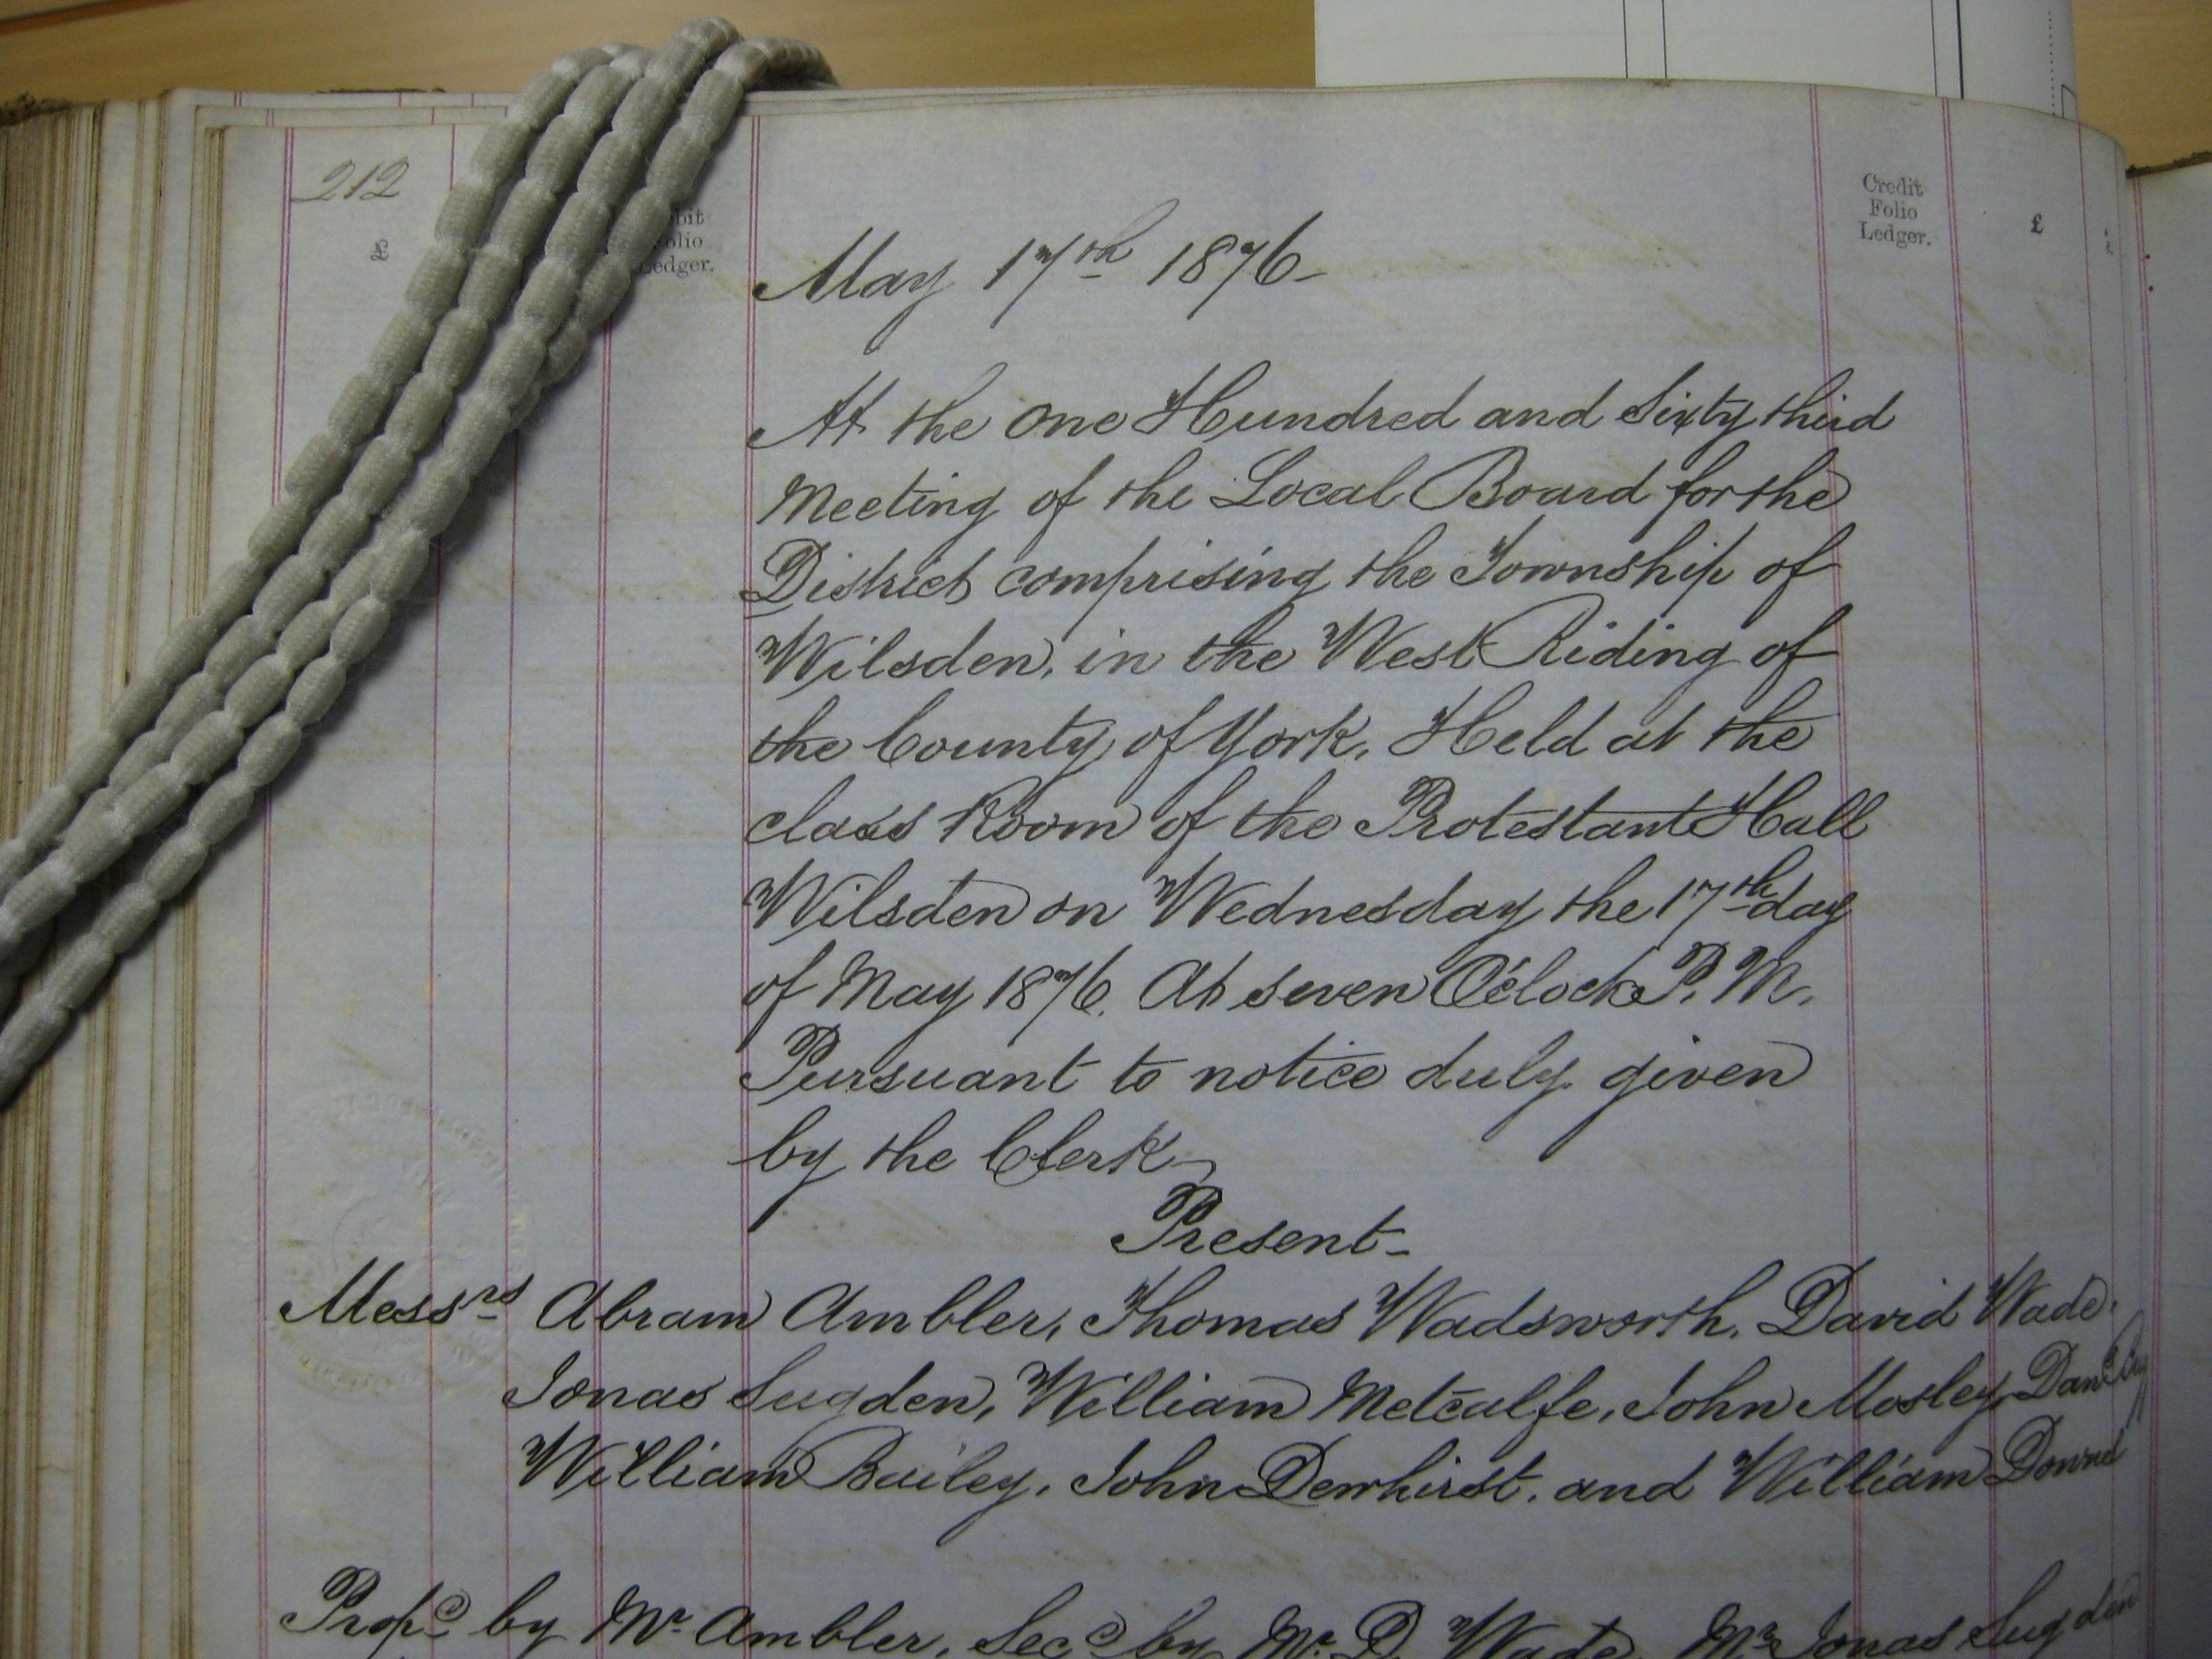 212
£
bit
olio
edger.
Credit
Folio
Ledger.
£
May 17th 1876
At the one Hundred and Sixty third
Meeting of the Local Board for the
District comprising the Township of
Wilsden, in the West Riding of
the County of York, Held at the
class Room of the Protestant Hall
Wilsden on Wednesday the 17th day
of May 1876. At seven O'clock P. M.
Pursuant to notice duly given
by the Clerk
Present-
Messrs Abram Ambler, Thomas Wadsworth, David Wade.
Jonas Sugden, William Metcalfe, John Mosley,
William Bailey, John Dewhirst, and William
Propd by Mr Ambler, Secd by Mr D. Wade, Mr Jonas Sugden